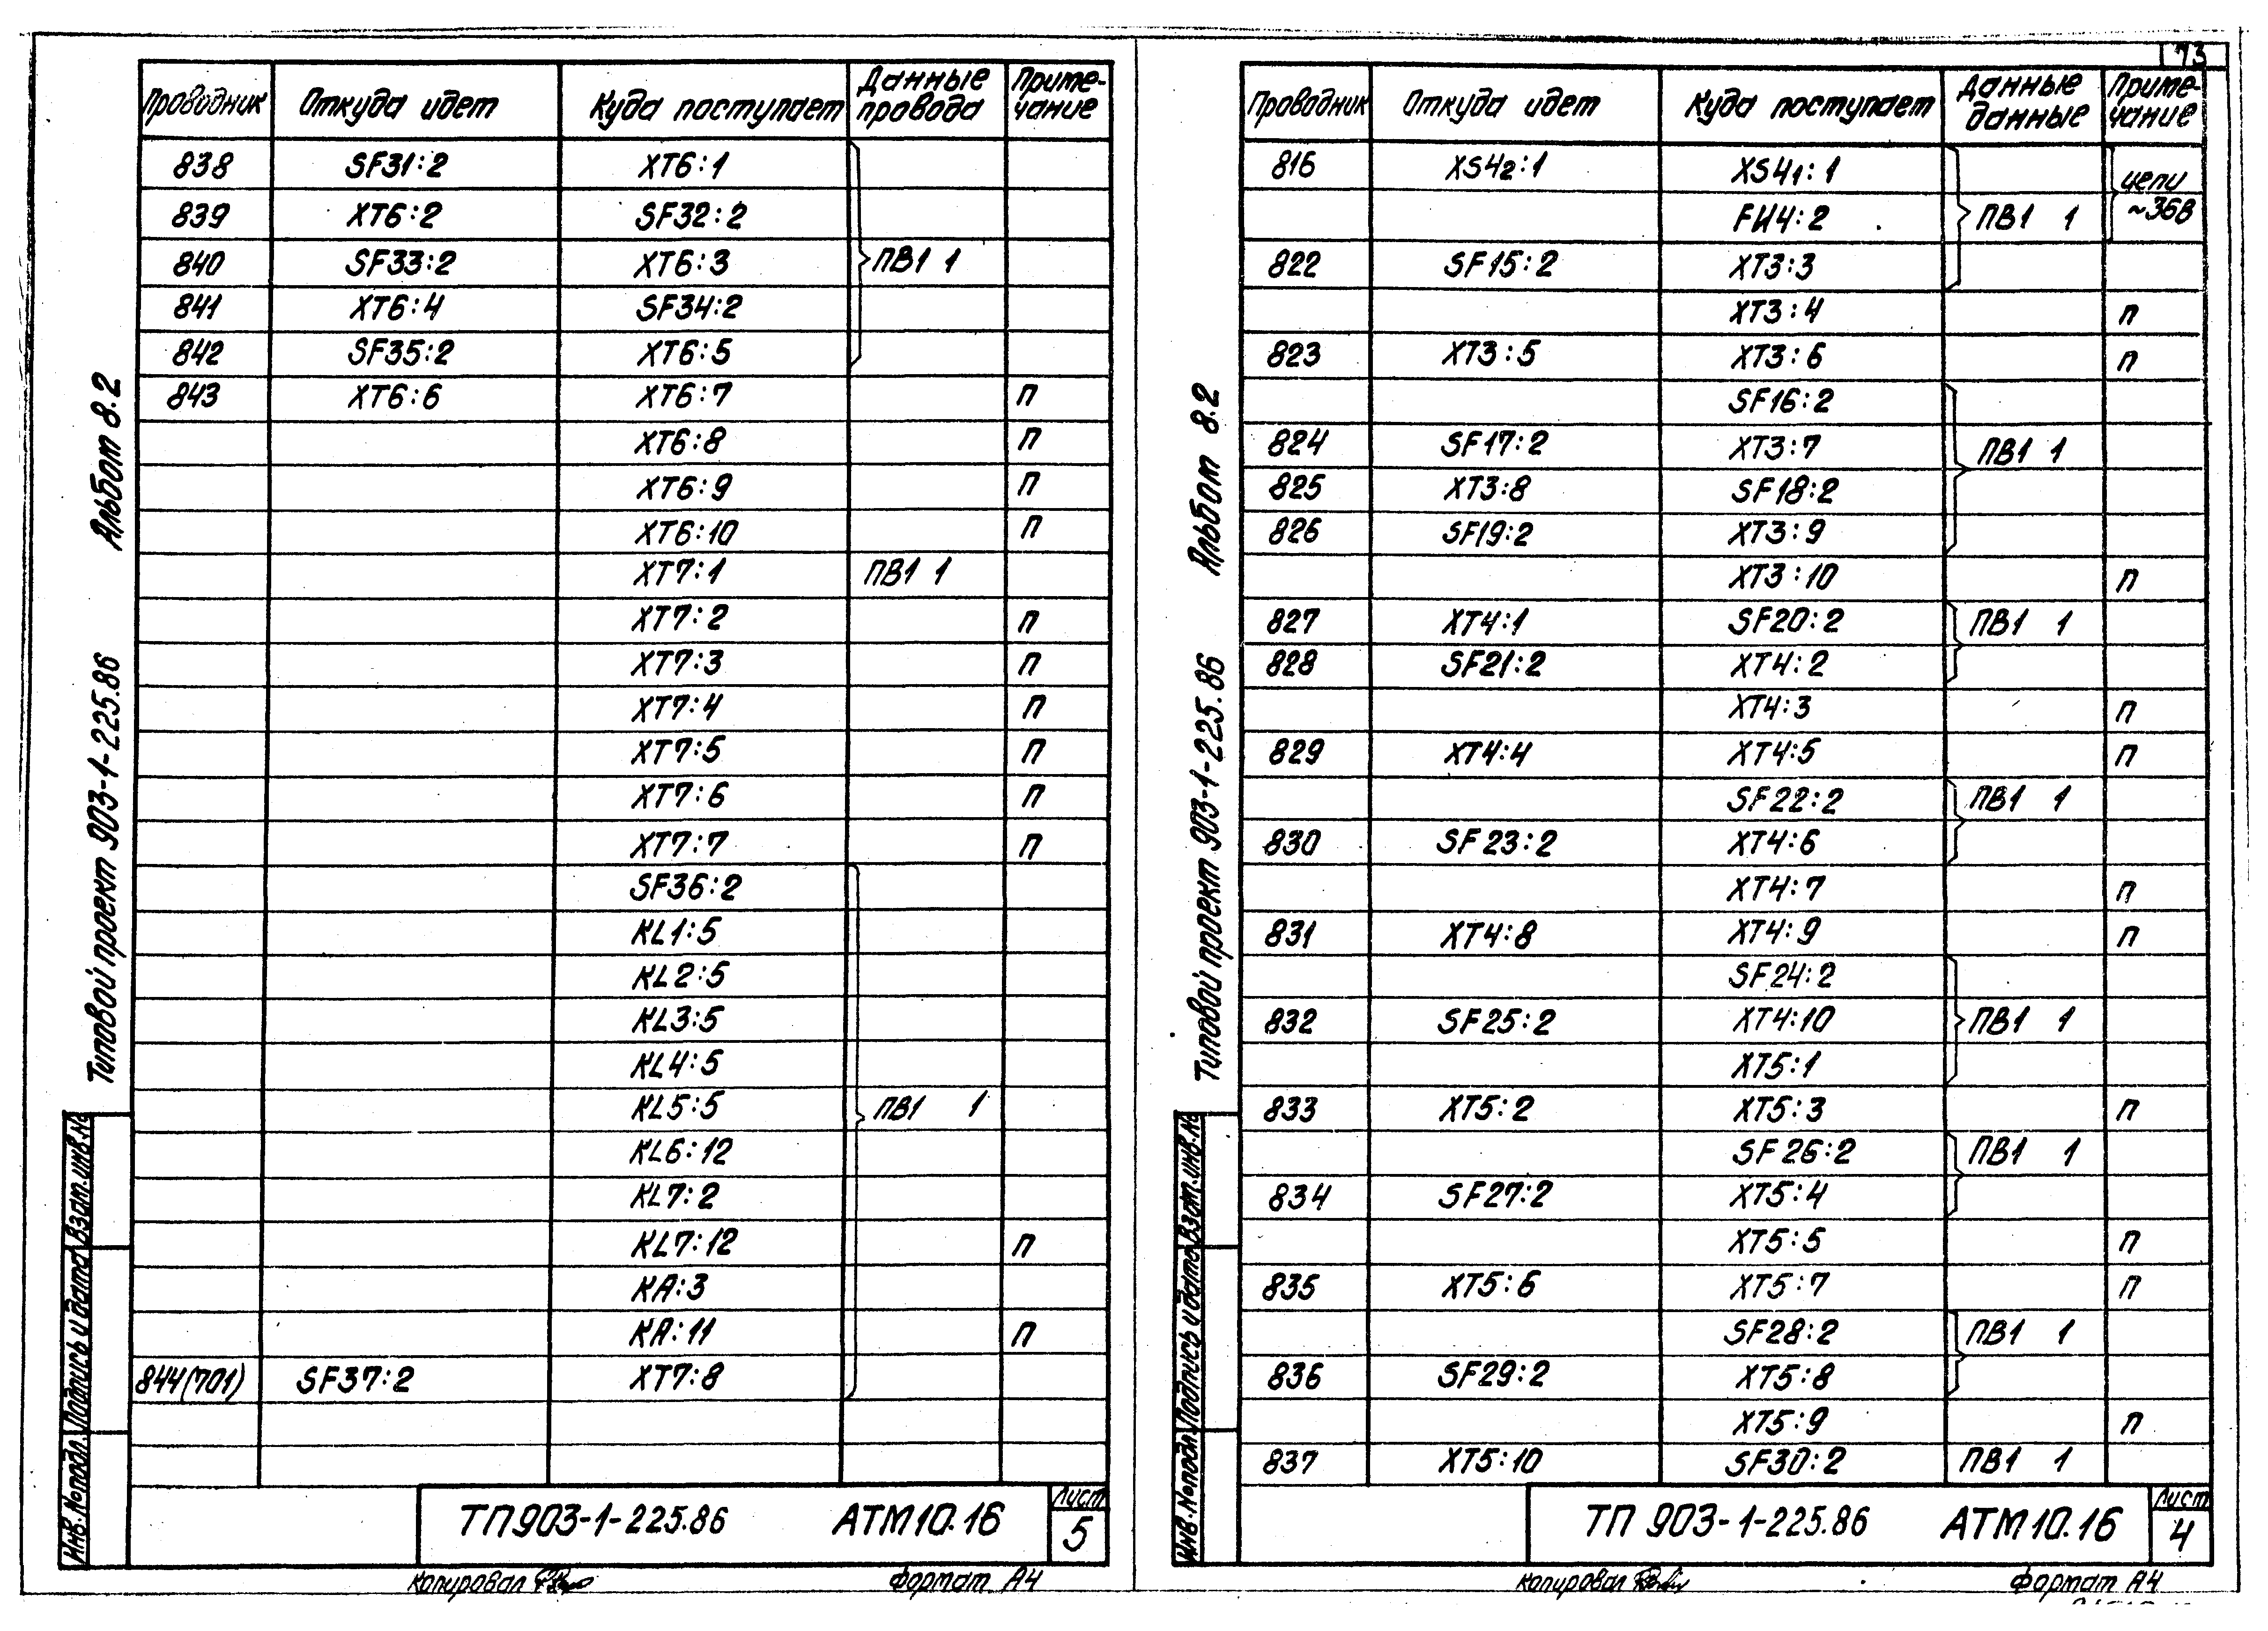 Проводник Откуда идет Куда поступает Данные провода Приме-чание
838 SF31:2 XT6:1
839 XT6:2 SF32:2
840 SF33:2 XT6:3 ПВ1 1
841 XT6:4 SF34:2
842 SF35:2 XT6:5
843 XT6:6 XT6:7 п
XT6:8 п
XT6:9 п
XT6:10 п
XT7:1 ПВ1 1
XT7:2 п
XT7:3 п
XT7:4 п
XT7:5 п
XT7:6 п
XT7:7 п
SF36:2
KL1:5
KL2:5
KL3:5
KL4:5
KL5:5 ПВ1 1
KL6:12
KL7:2
KL7:12 п
KA:3
KA:11 п
844(701) SF37:2 XT7:8
Альбом 8.2
Типовой проект 903-1-225.86
Взам.инв.№
Подпись и дата
Инв.№подл.
ТП903-1-225.86 АТМ10.16 Лист 5
Копировал
Формат А4
73
Проводник Откуда идет Куда поступает Данные данные Приме-чание
816 XS42:1 XS41:1 цепи
FИ4:2 ПВ1 1 ~36В
822 SF15:2 XT3:3
XT3:4 п
823 XT3:5 XT3:6 п
SF16:2
824 SF17:2 XT3:7 ПВ1 1
825 XT3:8 SF18:2
826 SF19:2 XT3:9
XT3:10 п
827 XT4:1 SF20:2 ПВ1 1
828 SF21:2 XT4:2
XT4:3 п
829 XT4:4 XT4:5 п
SF22:2 ПВ1 1
830 SF23:2 XT4:6
XT4:7 п
831 XT4:8 XT4:9 п
SF24:2
832 SF25:2 XT4:10 ПВ1 1
XT5:1
833 XT5:2 XT5:3 п
SF26:2 ПВ1 1
834 SF27:2 XT5:4
XT5:5 п
835 XT5:6 XT5:7 п
SF28:2 ПВ1 1
836 SF29:2 XT5:8
XT5:9 п
837 XT5:10 SF30:2 ПВ1 1
Альбом 8.2
Типовой проект 903-1-225.86
Взам.инв.№
Подпись и дата
Инв.№подл.
ТП 903-1-225.86 АТМ10.16 Лист 4
Копировал
Формат А4